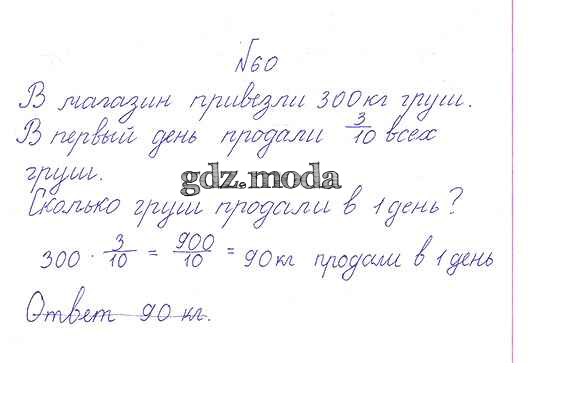 №60
В магазин привезли 300 кг груш.
В первый день продали 3/10 всех
груш.
gdz.moda
Сколько груш продали в 1 день?
300 · 3/10 = 900/10 = 90 кг продали в 1 день
Ответ 90 кг.